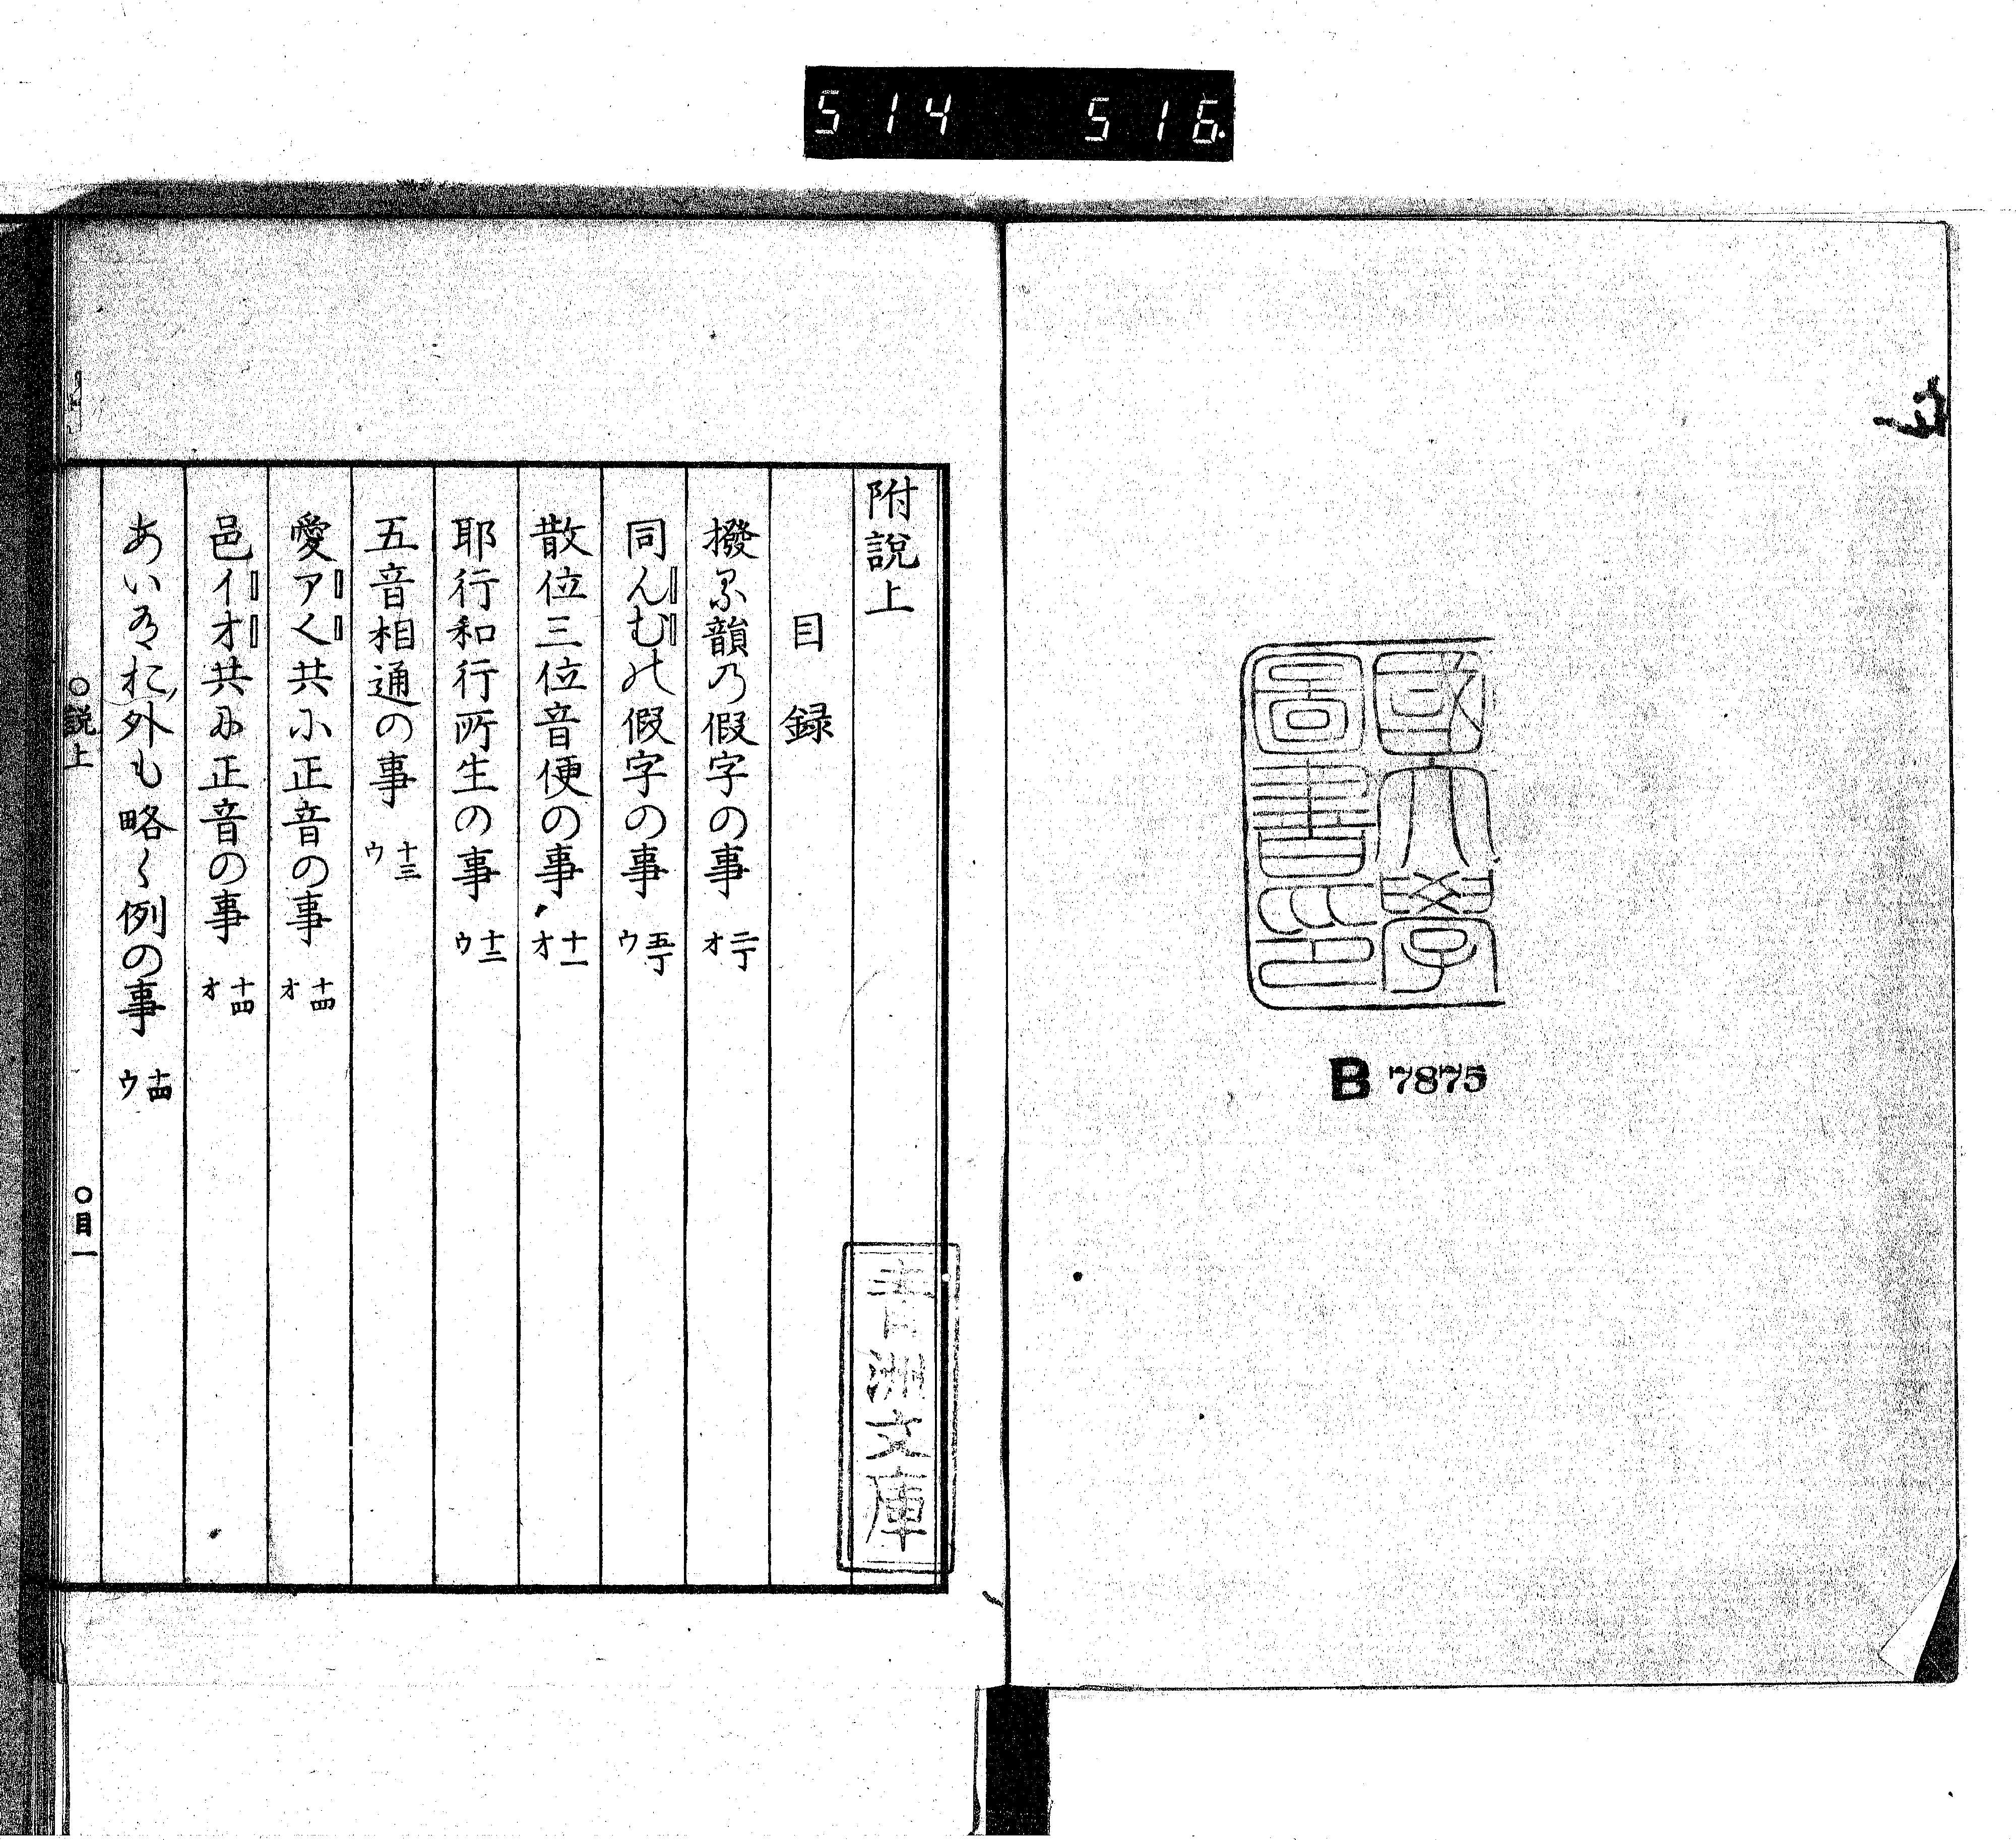 514 516
國文學
圖書印
B 7875
附說上
目錄
撥る韻乃假字の事 二丁オ
同んむの假字の事 五丁ウ
散位三位音便の事 十一オ
耶行和行所生の事 十二ウ
五音相通の事 十三ウ
愛アく共小正音の事 十四オ
邑イオ共に正音の事 十四オ
あいうえお外も略く例の事 十四ウ
青洲文庫
○説上
○目一